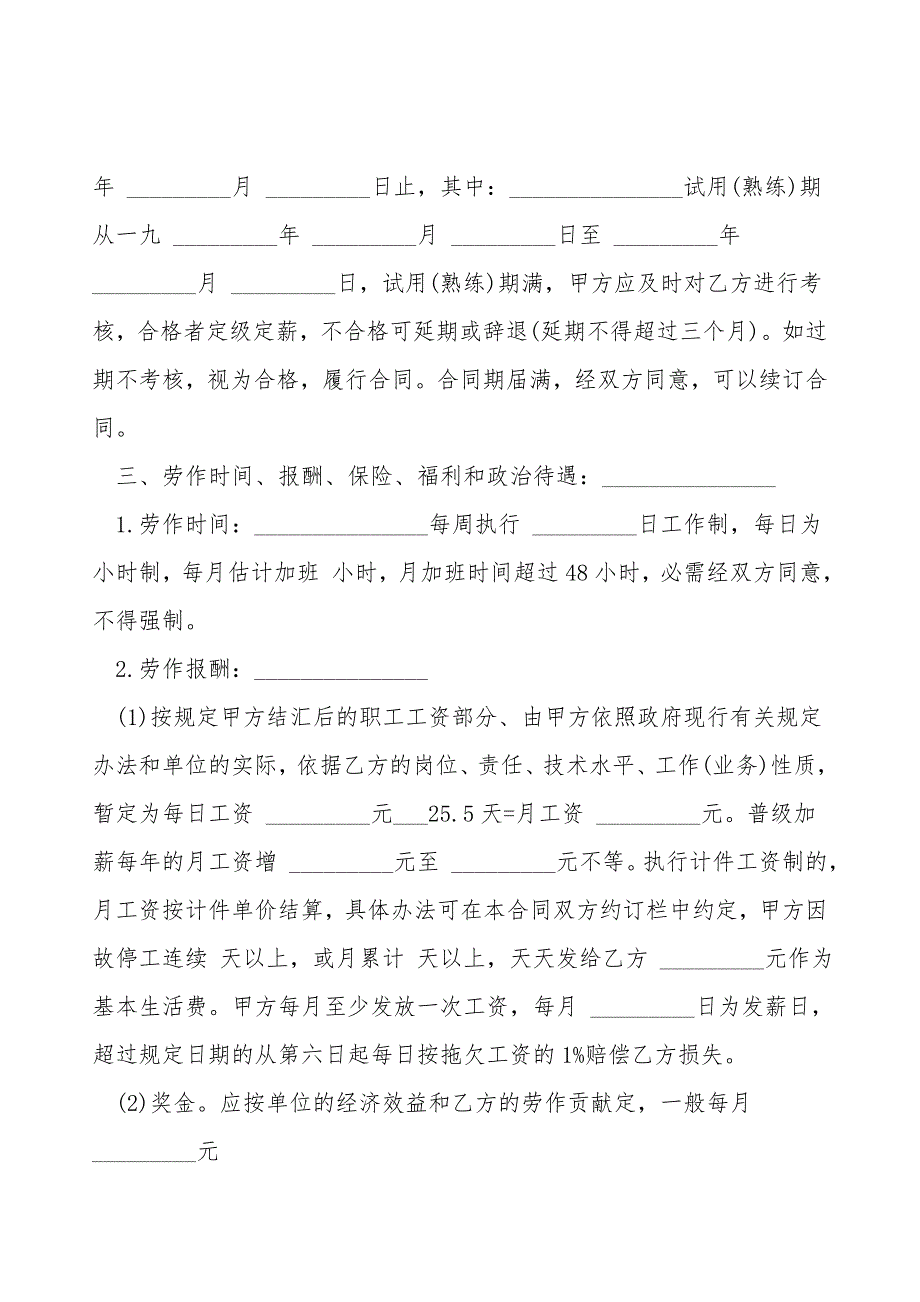 年 _________月 _________日止，其中：_______________试用(熟练)期
从一九 _________年 _________月 _________日至 _________年
_________月 _________日，试用(熟练)期满，甲方应及时对乙方进行考
核，合格者定级定薪，不合格可延期或辞退(延期不得超过三个月)。如过
期不考核，视为合格，履行合同。合同期届满，经双方同意，可以续订合
同。
三、劳作时间、报酬、保险、福利和政治待遇：_______________
1.劳作时间：_______________每周执行 _________日工作制，每日为
小时制，每月估计加班 小时，月加班时间超过 48 小时，必需经双方同意，
不得强制。
2.劳作报酬：_______________
(1)按规定甲方结汇后的职工工资部分、由甲方依照政府现行有关规定
办法和单位的实际，依据乙方的岗位、责任、技术水平、工作(业务)性质，
暂定为每日工资 _________元___25.5 天=月工资 _________元。普级加
薪每年的月工资增 _________元至 _________元不等。执行计件工资制的，
月工资按计件单价结算，具体办法可在本合同双方约订栏中约定，甲方因
故停工连续 天以上，或月累计 天以上，天天发给乙方 _________元作为
基本生活费。甲方每月至少发放一次工资，每月 _________日为发薪日，
超过规定日期的从第六日起每日按拖欠工资的 1%赔偿乙方损失。
(2)奖金。应按单位的经济效益和乙方的劳作贡献定，一般每月
_________元